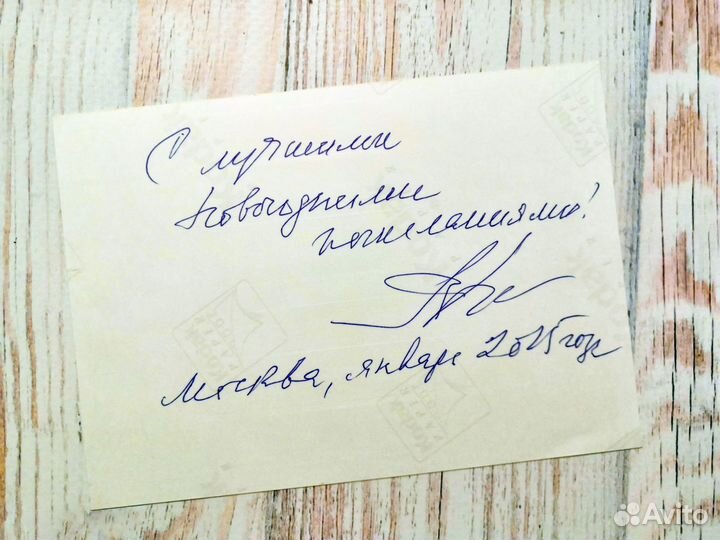 С лучшими
новогодними
пожеланиями!
Москва, январь 2015 год
Kodak
PAPER
Avito